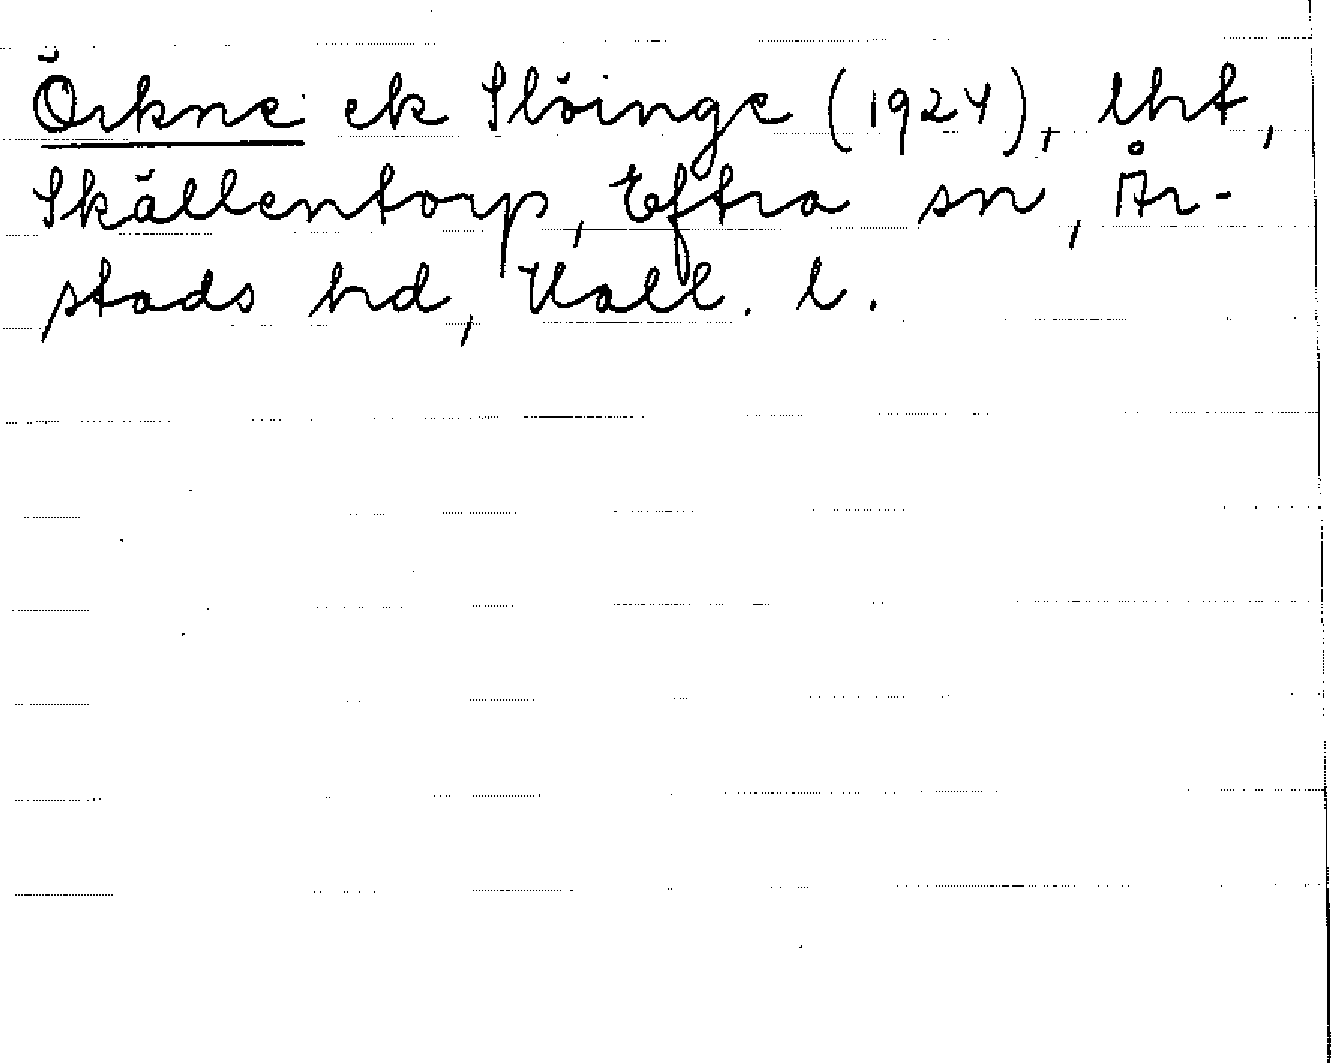 Örkne ek Slöinge (1924), lht,
Skällentorp, Eftra sn, År-
stads hd, Hall. l.